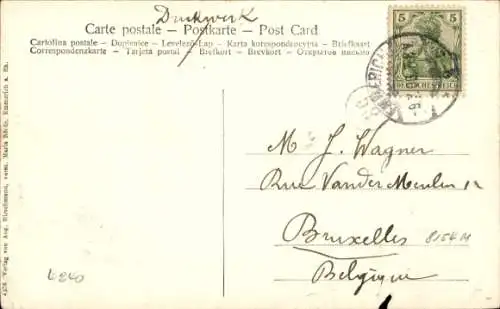 Druckwerk
Carte postale – Postkarte – Post Card
Cartolina postale – Dopisnice – Levelező-Lap – Karta korespondencyjna – Briefkaart
Correspondenzkarte – Tarjeta postal – Brefkort – Brevkort – Открытое письмо
5
DEUTSCHES REICH
EMMERICH
M J. Wagner
Rue Vander Meulen 12
Bruxelles
8154 M
Belgique
4240
Verlag von Aug. Hirschmann, verm. Maria Emmerich a. Rh.